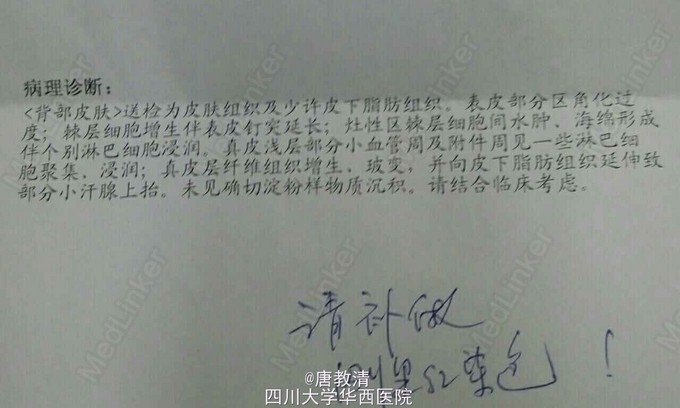 病理诊断：
<背部皮肤>送检为皮肤组织及少许皮下脂肪组织。表皮部分区角化过
度；棘层细胞增生伴表皮钉突延长；灶性区棘层细胞间水肿、海绵形成
伴个别淋巴细胞浸润。真皮浅层部分小血管周及附件周见一些淋巴细
胞聚集、浸润；真皮层纤维组织增生、玻变，并向皮下脂肪组织延伸致
部分小汗腺上抬。未见确切淀粉样物质沉积。请结合临床考虑。
请补做
刚果红染色！
@唐教清
四川大学华西医院
MedLinker
MedLinker
MedLinker
MedLinker
MedLinker